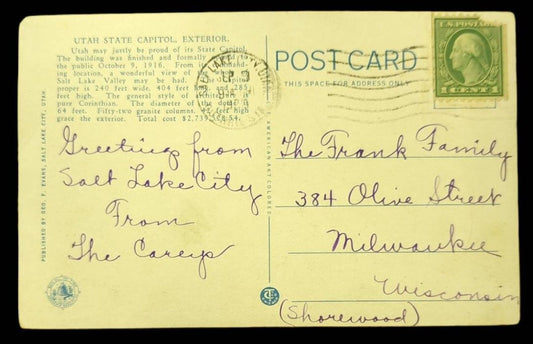 UTAH STATE CAPITOL, EXTERIOR.
Utah may justly be proud of its State Capitol.
The building was finished and formally
the public October 9, 1916. From
ing location, a wonderful view of
Salt Lake Valley may be had. The
proper is 240 feet wide, 404 feet and 285
feet high. The general style of is
pure Corinthian. The diameter of the dome is
64 feet. Fifty-two granite columns feet high
grace the exterior. Total cost $2,739,
Greeting from
Salt Lake City
From
The Careys
PUBLISHED BY GEO. F. EVANS, SALT LAKE CITY, UTAH
AMERICAN ART COLORED
POST CARD
THIS SPACE FOR ADDRESS ONLY
U.S. POSTAGE
1 CENT 1
The Frank Family
384 Olive Street
Milwaukee
Wisconsin
(Shorewood)